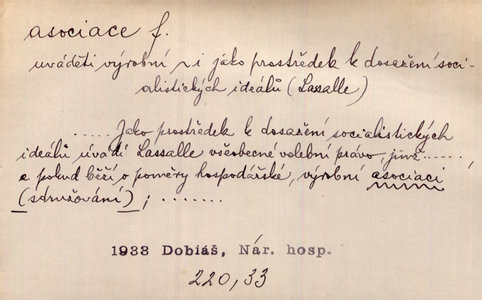 asociace f.
uváděti výrobní ~i jako prostředek k dosažení soci-
alistických ideálů (Lassalle)
..... Jako prostředek k dosažení socialistických
ideálů uvádí Lassalle všeobecné volební právo, jiné ......,
a pokud běží o poměry hospodářské, výrobní asociaci
(sdružování) ; .......
1933 Dobiáš, Nár. hosp.
220,33